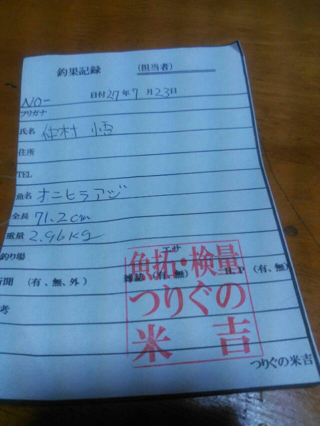 釣果記録 （担当者）
NO- 日付 27年 7月 23日
フリガナ
氏名 仲村
住所
TEL
魚名 オニヒラアジ
全長 71.2cm
重量 2.96kg
釣り場 エサ
新聞 （有、無、外） 雑誌 （有、無） H.P （有、無）
考
魚拓・検量
つりぐの
米吉
つりぐの米吉